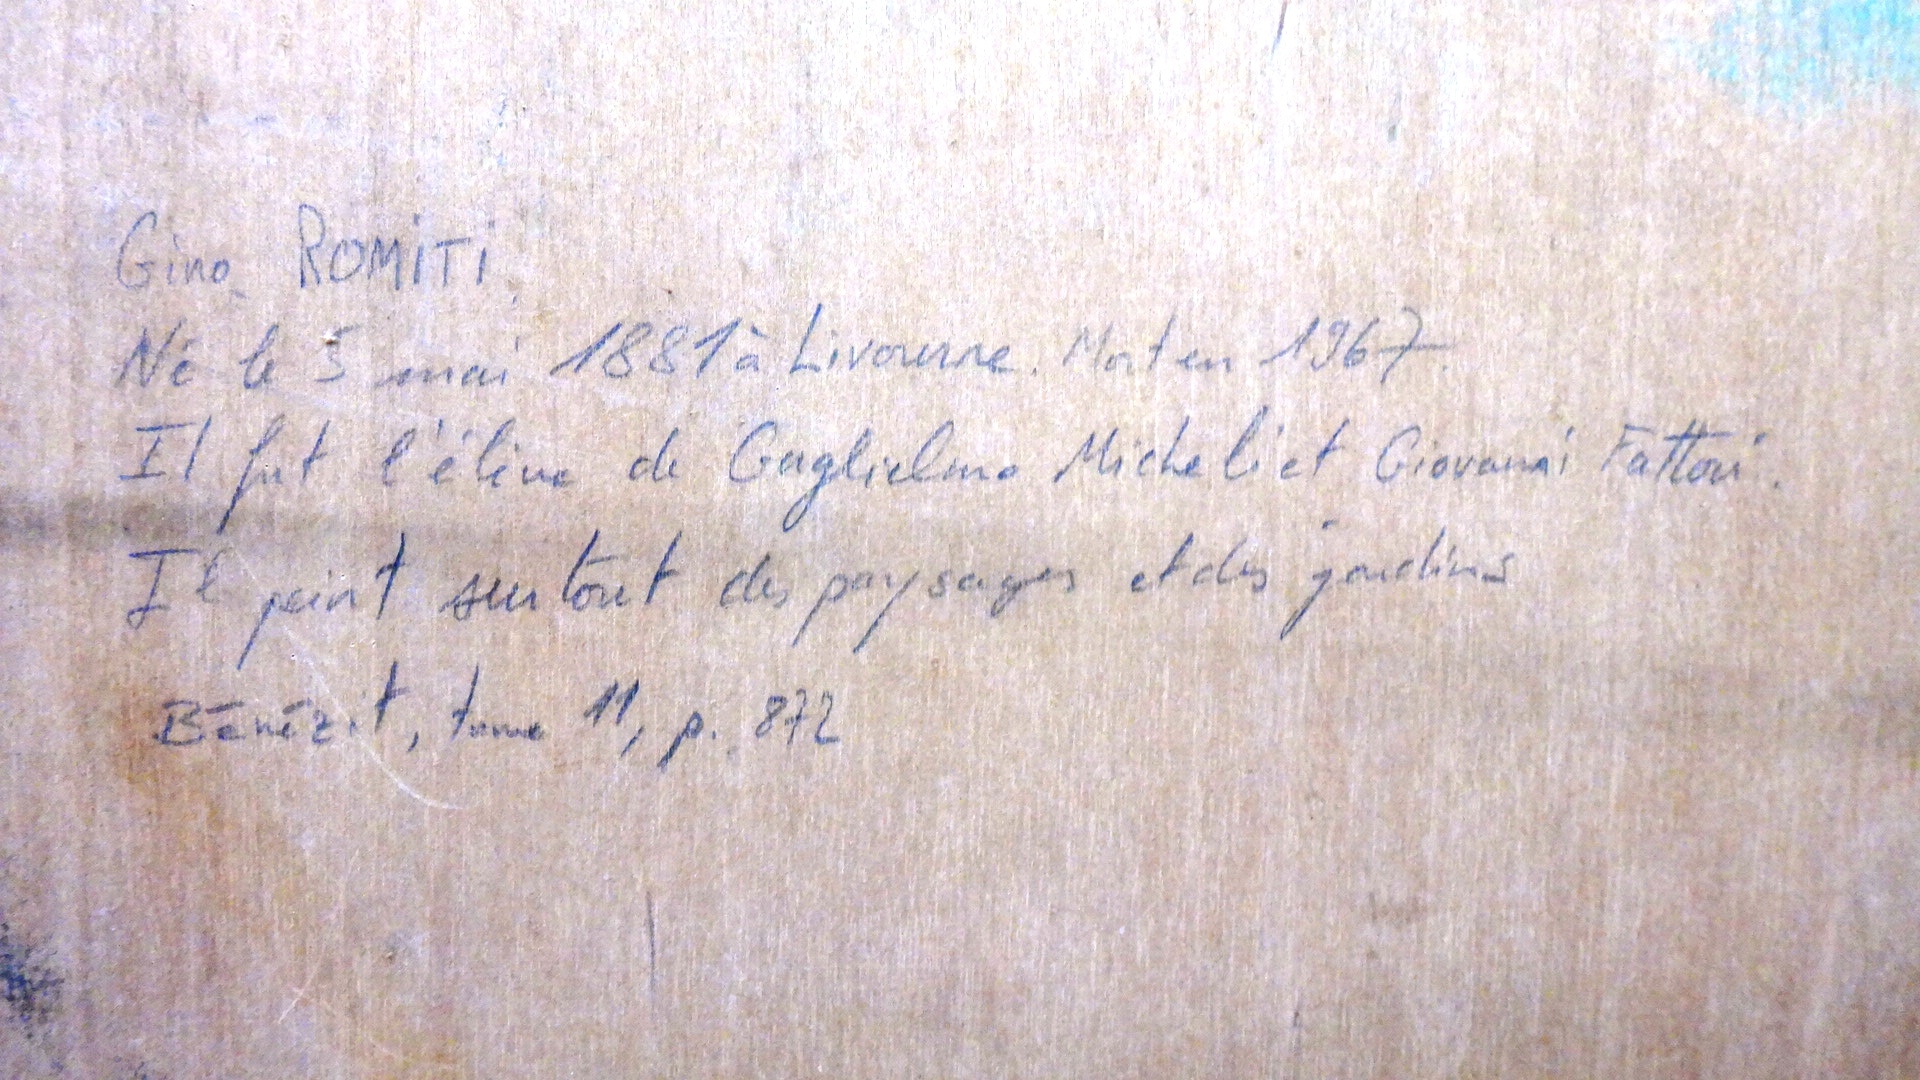 Gino ROMITI.
Né le 5 mai 1881 à Livourne. Mort en 1967.
Il fut l'élève de Guglielmo Micheli et Giovanni Fattori.
Il peint surtout des paysages et des jardins
Bénézit, tome 11, p. 872